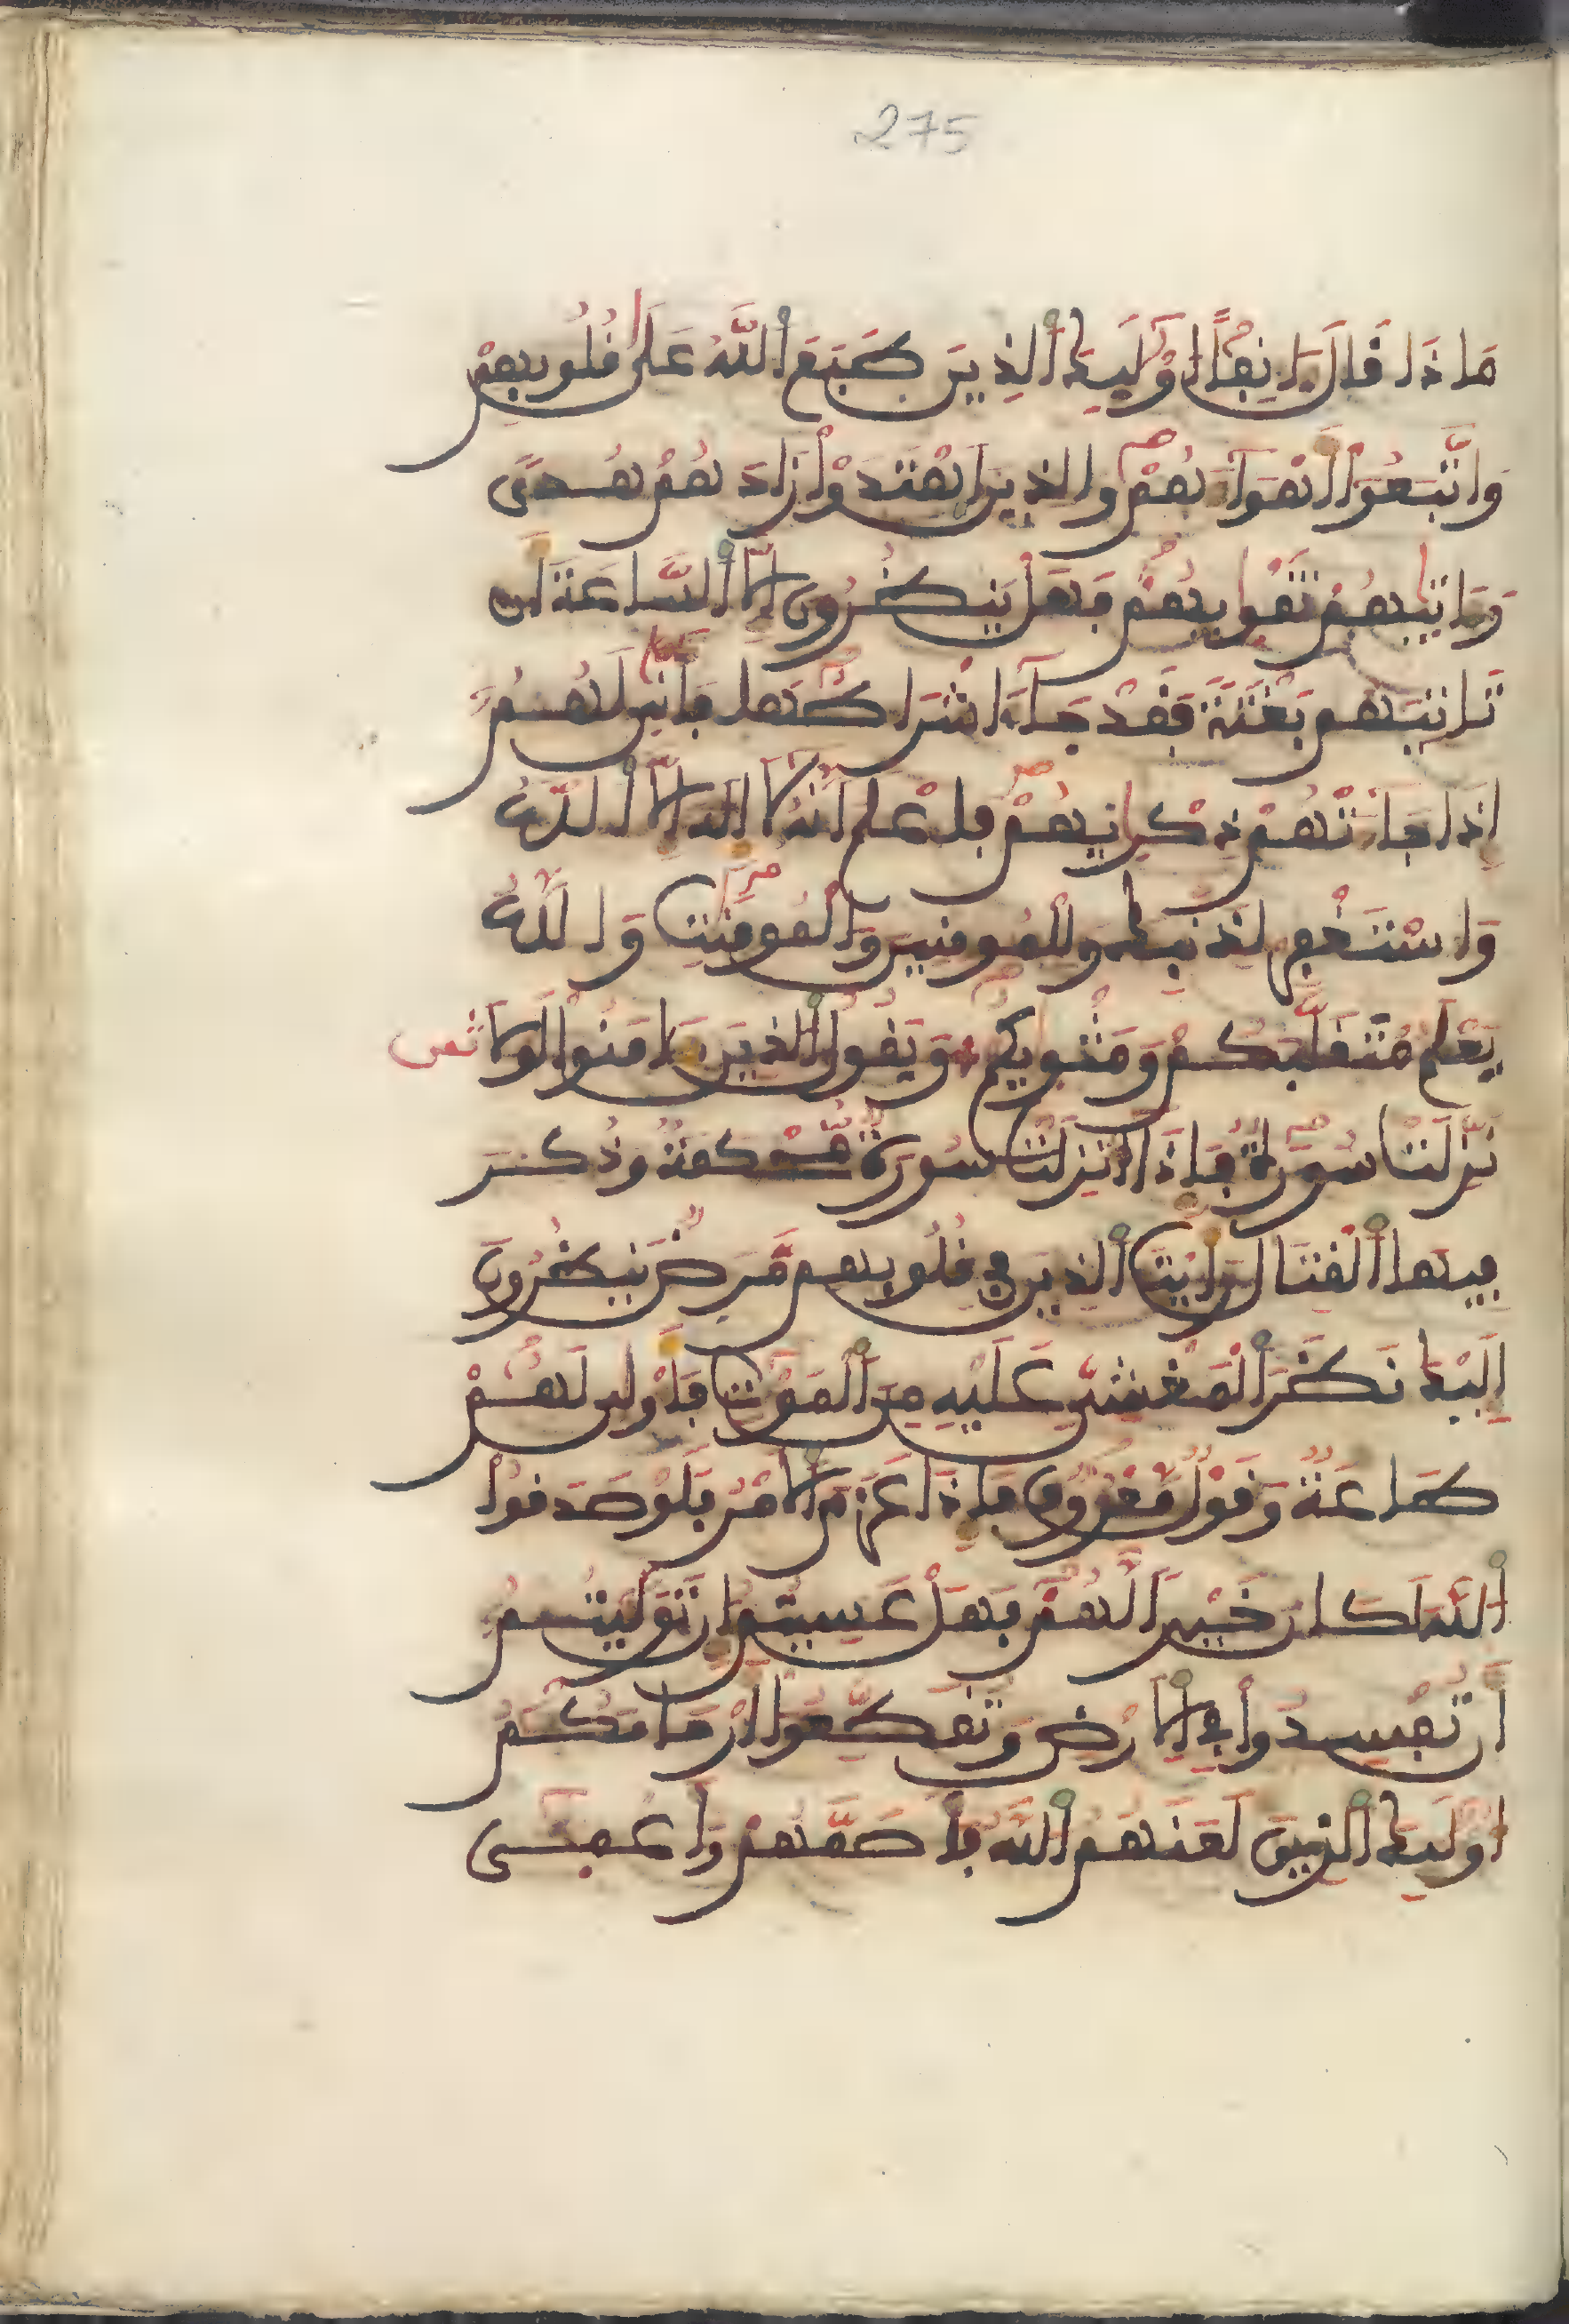 275
مَاذَا قَالَ ءَانِفًا اُوْلَٰٓئِكَ ألذِينَ طَبَعَ أللَّهُ عَلَىٰ قُلُوبِهِمْ
وَاتَّبَعُوٓاْ أَهْوَآءَهُمْ والذِينَ اَهْتَدَوْاْ زَادَهُمْ هُدىً
وَءَاتَيٰهُمْ تَقْويٰهُمْ فَهَلْ يَنظُرُونَ إِلَّا ألسَّاعَةَ أَن
تَاتِيَهُم بَغْتَةً فَقَدْ جَآءَ اشْرَاطُهَا فَأَنّىٰ لَهُمُۥٓ
إِذَا جَآءَتْهُمْ ذِكْرٰيٰهُمْ فاعْلَم اَنَّهُۥ لَآ إلٰه إِلَّا أللَّهُ
وَاسْتَغْفِر لِذَنۢبِكَ وللمُومنِينَ وَالْمُومِنٰتِ وَاللَّهُ
يَعْلَمُ مُتَقَلَّبَكُمْ وَمَثْوٜيٰكُمْ وَيَقُولُ ألذِينَ ءَامَنُواْ لَوْلَا ثمن
نُزِّلَتْ سُورَةٌ فَإِذَآ أُنزِلَتْ سُورَةٌ مُّحْكَمَةٌ وذُكِرَ
فِيهَا ألْقِتَالُ رَأَيْتَ ألذِينَ فِي قُلُوبِهِم مَّرَضٌ يَنظُرُونَ
إِلَيْكَ نَظَرَ ألْمَغْشِيِّ عَلَيْهِ مِنَ ألْمَوْتِ فَأَوْلىٰ لَهُمْ
طَاعَةٌ وَقَوْلٌ مَّعْرُوفٌ فَإِذَا عَزَمَ ألَامْرُ فَلَوْ صَدَقُواْ
أللَّهَ لَكَانَ خَيْراً لَّهُمْ فَهَلْ عَسِيتُمُۥٓ إِن تَوَلَّيْتُمُۥٓ
أَن تُفْسِدُواْ فِي ألَارْضِ وَتُقَطِّعُوٓاْ أَرْحَامَكُمُۥٓ
أُوْلَٰٓئِكَ ألذِينَ لَعَنَهُمُ أللَّهُ فَأَصَمَّهُمْ وَأَعْمىٰٓ